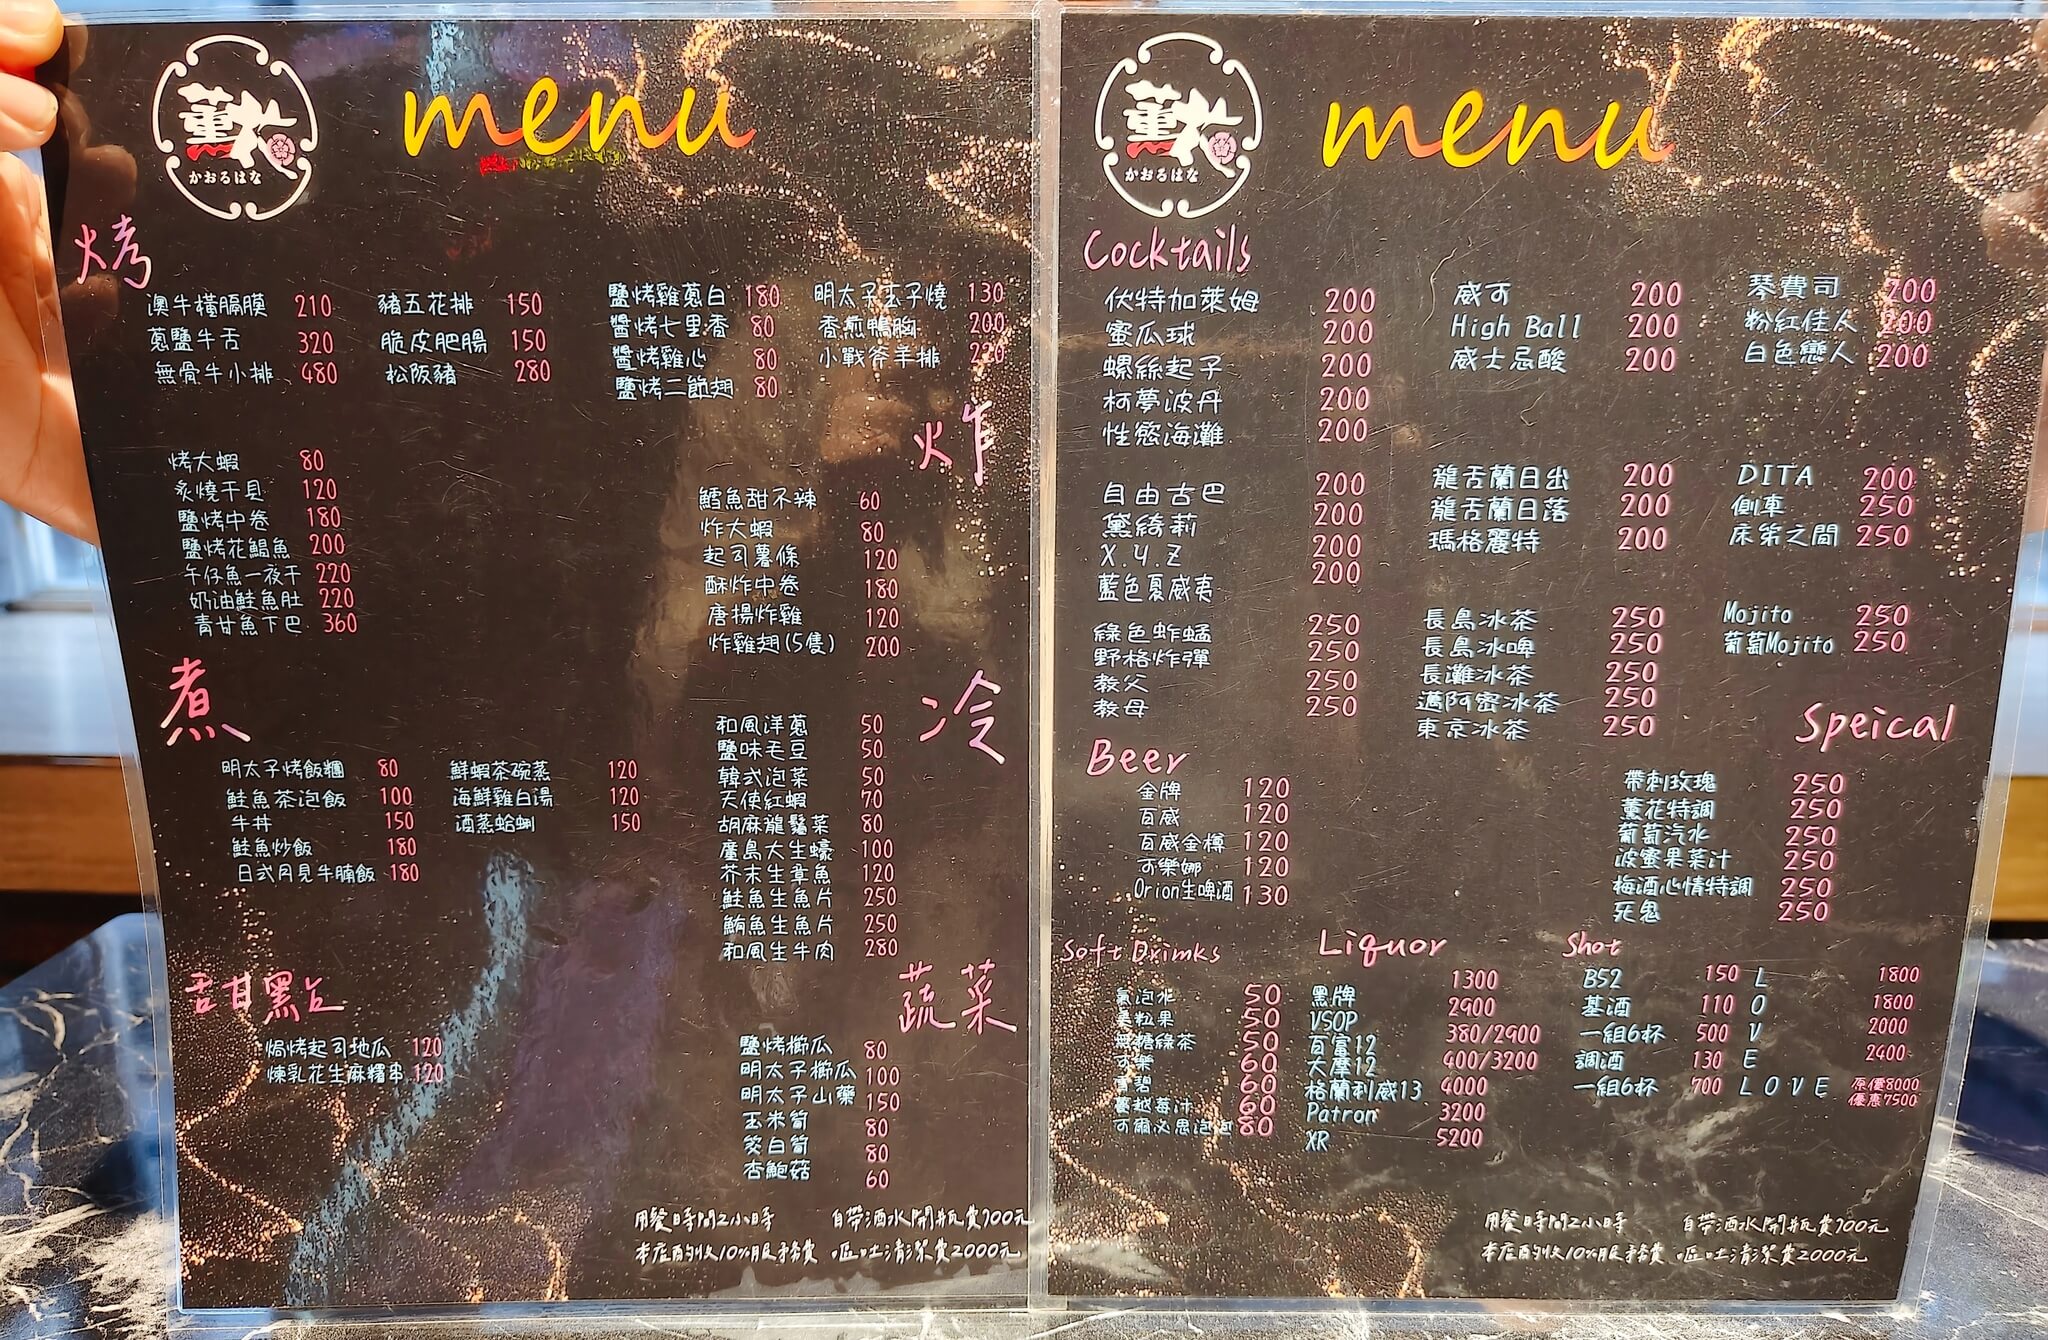 薰花
かおるはな
menu
烤
澳牛橫膈膜 210
蔥鹽牛舌 320
無骨牛小排 480
豬五花排 150
脆皮肥腸 150
松阪豬 280
鹽烤雞蔥白 180
醬烤七里香 80
醬烤雞心 80
鹽烤二節翅 80
明太子玉子燒 130
香煎鴨胸 200
小戰斧羊排 220
烤大蝦 80
炙燒干貝 120
鹽烤中卷 180
鹽烤花鯧魚 200
午仔魚一夜干 220
奶油鮭魚肚 220
青甘魚下巴 360
炸
鱈魚甜不辣 60
炸大蝦 80
起司薯條 120
酥炸中卷 180
唐揚炸雞 120
炸雞翅(5隻) 200
煮
明太子烤飯糰 80
鮭魚茶泡飯 100
牛丼 150
鮭魚炒飯 180
日式月見牛腩飯 180
鮮蝦茶碗蒸 120
海鮮雞白湯 120
酒蒸蛤蜊 150
冷
和風洋蔥 50
鹽味毛豆 50
韓式泡菜 50
天使紅蝦 70
胡麻龍鬚菜 80
廣島大生蠔 100
芥末生章魚 120
鮭魚生魚片 250
鮪魚生魚片 250
和風生牛肉 280
甜點
焗烤起司地瓜 120
煉乳花生麻糬串 120
蔬菜
鹽烤櫛瓜 80
明太子櫛瓜 100
明太子山藥 150
玉米筍 80
茭白筍 80
杏鮑菇 60
用餐時間2小時 自帶酒水開瓶費700元
本店酌收10%服務費 嘔吐清潔費2000元
薰花
かおるはな
menu
Cocktails
伏特加萊姆 200
蜜瓜球 200
螺絲起子 200
柯夢波丹 200
性慾海灘 200
威可 200
High Ball 200
威士忌酸 200
琴費司 200
粉紅佳人 200
白色戀人 200
自由古巴 200
黛綺莉 200
X.Y.Z 200
藍色夏威夷 200
龍舌蘭日出 200
龍舌蘭日落 200
瑪格麗特 200
DITA 200
側車 250
床笫之間 250
綠色蚱蜢 250
野格炸彈 250
教父 250
教母 250
長島冰茶 250
長島冰啤 250
長灘冰茶 250
邁阿密冰茶 250
東京冰茶 250
Mojito 250
葡萄Mojito 250
Beer
金牌 120
百威 120
百威金樽 120
可樂娜 120
Orion生啤酒 130
Speical
帶刺玫瑰 250
薰花特調 250
葡萄汽水 250
波蜜果菜汁 250
梅酒心情特調 250
死鬼 250
Soft Drimks
氣泡水 50
美粒果 50
無糖綠茶 50
可樂 60
雪碧 60
蔓越莓汁 60
可爾必思泡泡 80
Liquor
黑牌 1300
VSOP 2900
百富12 380/2900
大摩12 400/3200
格蘭利威13 4000
Patron 3200
XR 5200
Shot
B52 150
基酒 110
一組6杯 500
調酒 130
一組6杯 700
L 1800
O 1800
V 2000
E 2400
LOVE 原價8000
優惠7500
用餐時間2小時 自帶酒水開瓶費700元
本店酌收10%服務費 嘔吐清潔費2000元